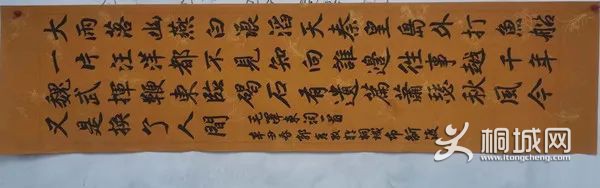 大雨落幽燕白浪滔天秦皇島外打魚船
一片汪洋都不見知向誰邊往事越千年
魏武揮鞭東臨碣石有遺篇蕭瑟秋風今
又是換了人間
毛澤東词一首
辛丑春 於桐城
桐城网
www.itongcheng.com